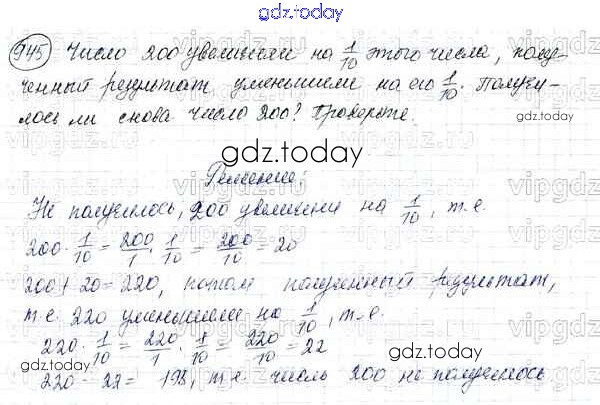 gdz.today
945 Число 200 увеличили на 1/10 этого числа, полу-
ченный результат уменьшили на его 1/10. Получи-
лось ли снова число 200? Проверьте.
gdz.today
Решение:
Не получилось, 200 увеличили на 1/10, т.е.
200 · 1/10 = 200/1 · 1/10 = 200/10 = 20
200 + 20 = 220, потом полученный результат,
т.е. 220 уменьшили на 1/10, т.е.
220 · 1/10 = 220/1 · 1/10 = 220/10 = 22
gdz.today
220 - 22 = 198, т.е. число 200 не получилось